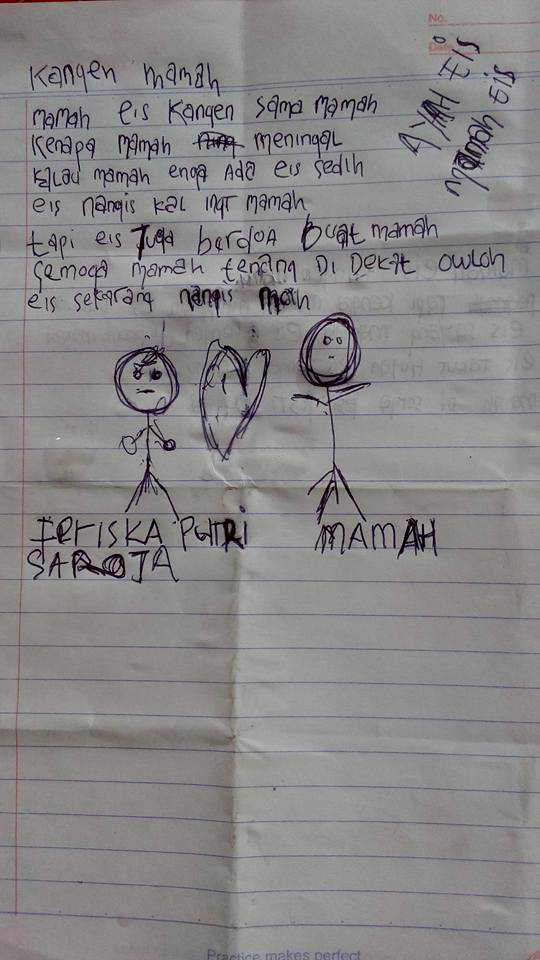 No.
Date
AYAH EIS
mamah EIS
Kangen mamah
mamah eis Kangen sama mamah
Kenapa mamah meningal
Kalau mamah enga ADA eis sedih
eis nangis kal ingt mamah
tapi eis Juga berdoA buat mamah
Semoga mamah tenang Di Dekat owloh
eis sekarang nangis mah
IERISKA PUTRI
SAROJA
MAMAH
Practice makes perfect